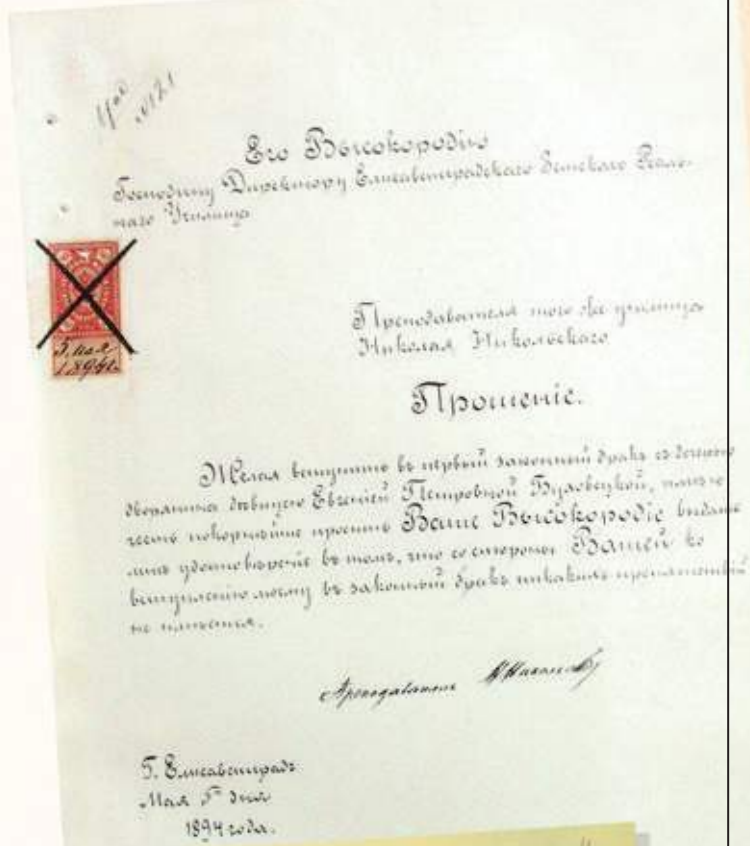 № 121
Его Высокородію
Господину Директору Елисаветградскаго Земскаго Реаль-
наго Училища
Преподавателя того же училища
Николая Никольскаго
5 мая
1894 г.
Прошеніе.
Желая вступить въ первый законный бракъ съ дочерью
дворянина дѣвицею Евгеніей Петровной Буловецкой, имѣю
честь покорнѣйше просить Ваше Высокородіе выдать
мнѣ удостовѣреніе въ томъ, что со стороны Вашей ко
вступленію моему въ законный бракъ никакихъ препятствій
не имѣется.
Преподаватель
Г. Елисаветградъ
Мая 5 дня
1894 года.